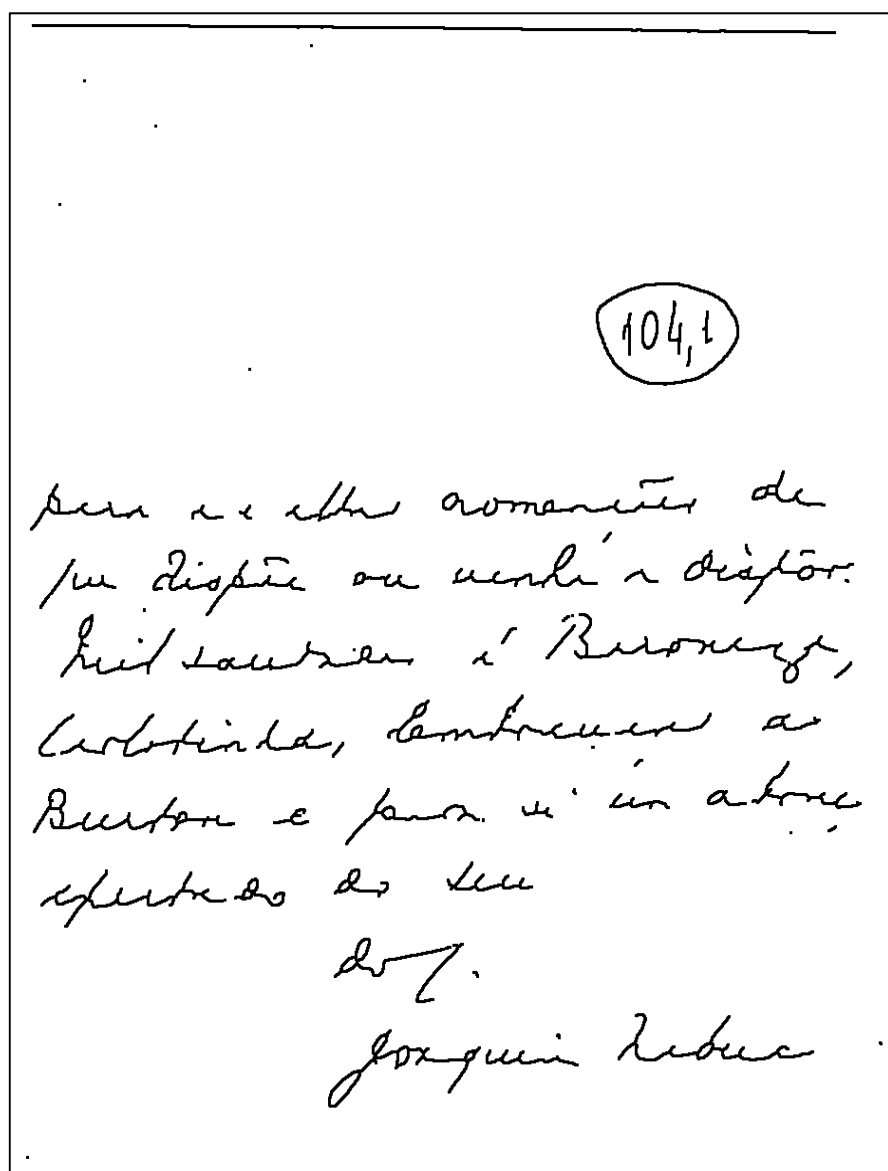 104,1
para as altas nomeações de
que dispõe ou venha a dispôr.
Mil saudades á Baroneza,
Carlotinha, lembranças ao
Burton e para si um abraço
apertado do seu
do C.
Joaquim Nabuco